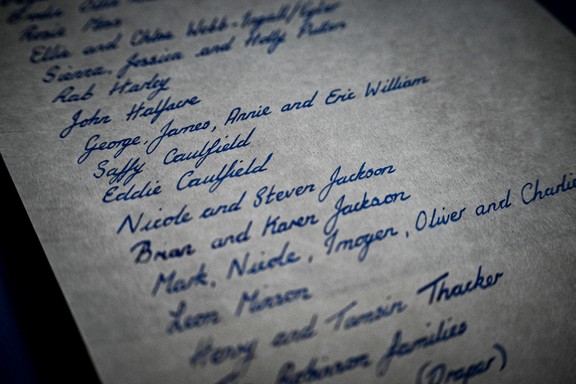 Rosie
Ellie and Chloe Webb-
Sienna, Jessica and Holly
Rab Harley
John Halfave
George, James, Annie and Eric William
Saffy Caulfield
Eddie Caulfield
Nicole and Steven Jackson
Brian and Karen Jackson
Mark, Nicole, Imogen, Oliver and Charlie
Leon Minson
Harry and Tamsin Thacker
Robinson families
(Draper)